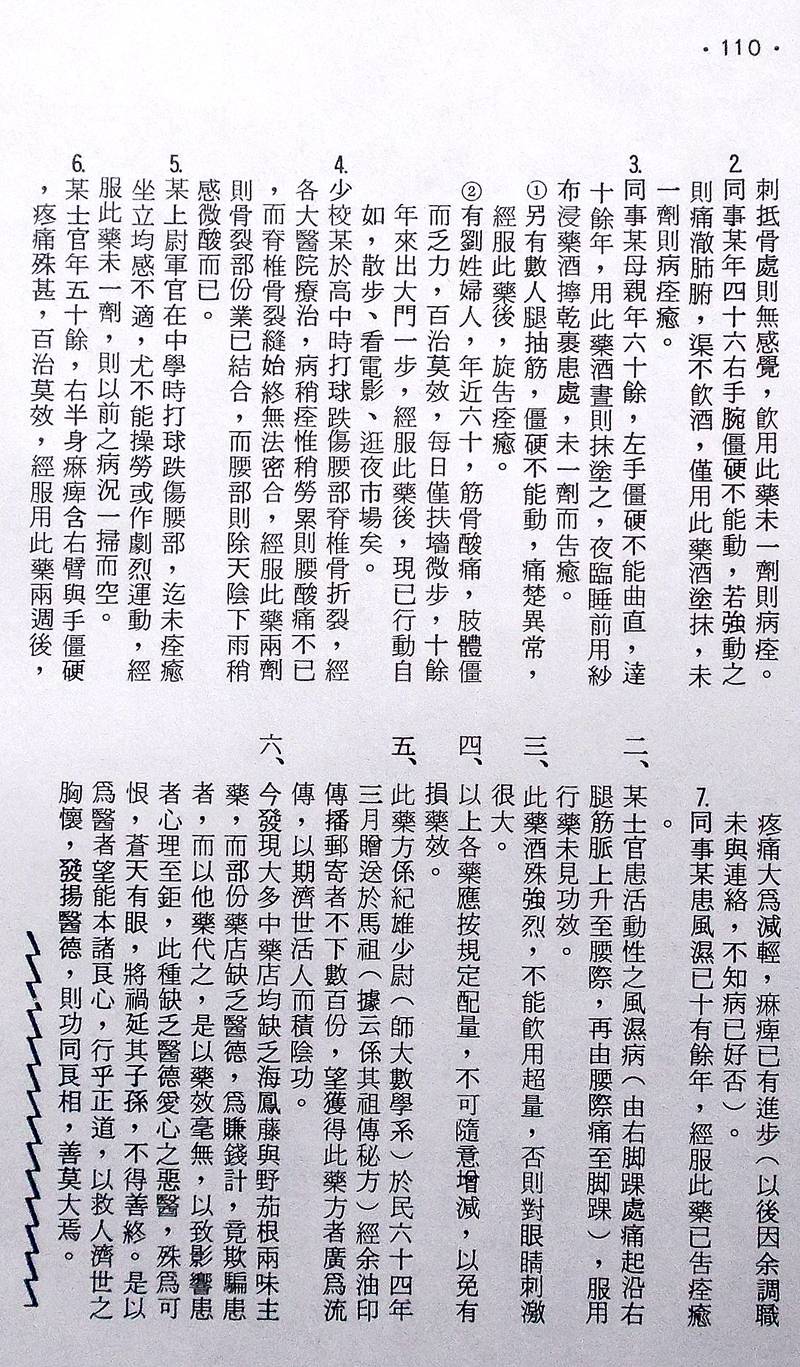 ·110·
刺抵骨處則無感覺，飲用此藥未一劑則病痊。
2.同事某年四十六右手腕僵硬不能動，若強動之
則痛澈肺腑，渠不飲酒，僅用此藥酒塗抹，未
一劑則病痊癒。
3.同事某母親年六十餘，左手僵硬不能曲直，達
十餘年，用此藥酒晝則抹塗之，夜臨睡前用紗
布浸藥酒擰乾裹患處，未一劑而告癒。
①另有數人腿抽筋，僵硬不能動，痛楚異常，
經服此藥後，旋告痊癒。
②有劉姓婦人，年近六十，筋骨酸痛，肢體僵
而乏力，百治莫效，每日僅扶墻微步，十餘
年來出大門一步，經服此藥後，現已行動自
如，散步、看電影、逛夜市場矣。
4.少校某於高中時打球跌傷腰部脊椎骨折裂，經
各大醫院療治，病稍痊惟稍勞累則腰酸痛不已
，而脊椎骨裂縫始終無法密合，經服此藥兩劑
則骨裂部份業已結合，而腰部則除天陰下雨稍
感微酸而已。
5.某上尉軍官在中學時打球跌傷腰部，迄未痊癒
坐立均感不適，尤不能操勞或作劇烈運動，經
服此藥未一劑，則以前之病況一掃而空。
6.某士官年五十餘，右半身麻痺含右臂與手僵硬
，疼痛殊甚，百治莫效，經服用此藥兩週後，
疼痛大為減輕，麻痺已有進步（以後因余調職
未與連絡，不知病已好否）。
7.同事某患風濕已十有餘年，經服此藥已告痊癒
。
二、某士官患活動性之風濕病（由右脚踝處痛起沿右
腿筋脈上升至腰際，再由腰際痛至脚踝），服用
行藥未見功效。
三、此藥酒殊強烈，不能飲用超量，否則對眼睛刺激
很大。
四、以上各藥應按規定配量，不可隨意增減，以免有
損藥效。
五、此藥方係紀雄少尉（師大數學系）於民六十四年
三月贈送於馬祖（據云係其祖傳秘方）經余油印
傳播郵寄者不下數百份，望獲得此藥方者廣為流
傳，以期濟世活人而積陰功。
六、今發現大多中藥店均缺乏海鳳藤與野茄根兩味主
藥，而部份藥店缺乏醫德，為賺錢計，竟欺騙患
者，而以他藥代之，是以藥效毫無，以致影響患
者心理至鉅，此種缺乏醫德愛心之惡醫，殊為可
恨，蒼天有眼，將禍延其子孫，不得善終。是以
為醫者望能本諸良心，行乎正道，以救人濟世之
胸懷，發揚醫德，則功同良相，善莫大焉。